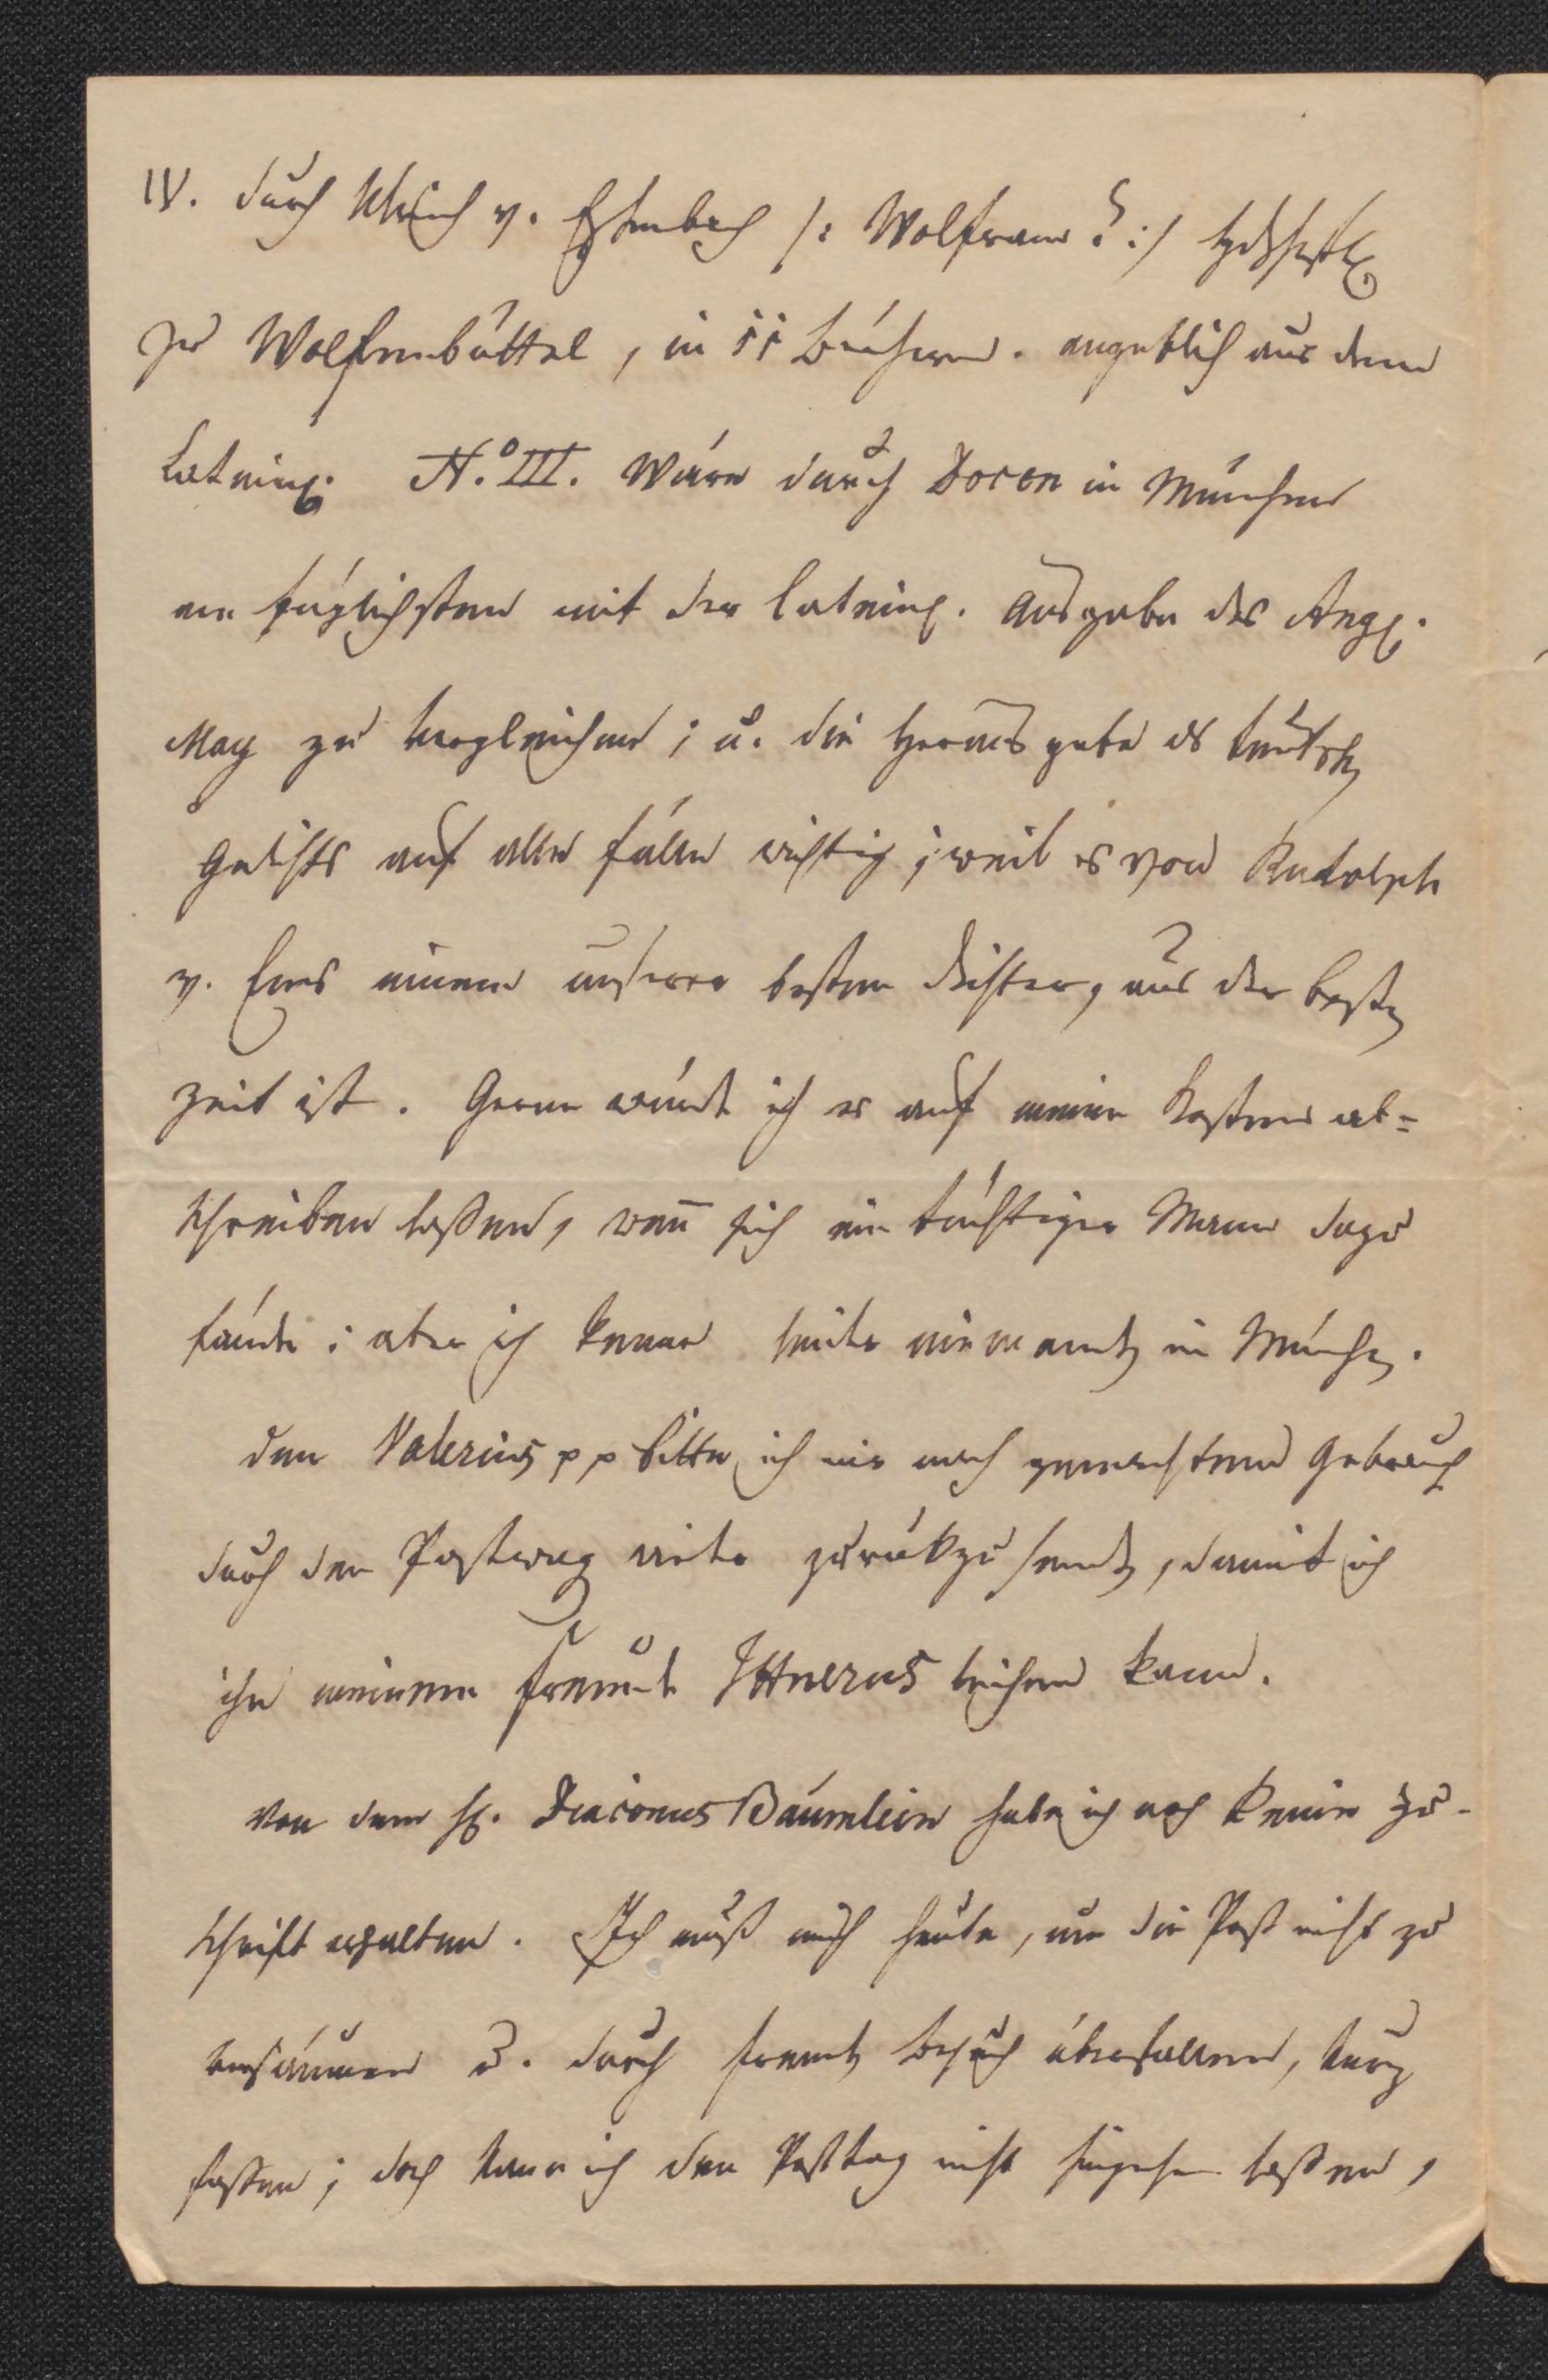 IV. durch Ulrich v. Eschenbach /: Wolfram? :/ Hdschftl.
zu Wolfenbüttel, in 11 Büchern. angeblich aus dem
Latein. N.º III. wäre durch Docen in München
am füglichsten mit der latein. Ausgabe des Ang.
May zu vergleichen; u. die Herausgabe des teütschen
Gedichts auf alle Fälle wichtig, weil es von Rudolph
v. Ems einem unserer besten Dichter, aus der besten
Zeit ist. Gerne würde ich es auf meine Kosten ab=
schreiben laßen, wenn sich ein tüchtiger Mann dazu
fände: aber ich kenne leider niemanden in München.
Den Valerius pp bitte ich mir nach gemachtem Gebrauch
durch den Postwag wieder zurükzusenden, damit ich
ihn meinem Freunde Ittnerus leihen kann.
Von dem H. Diaconus Bäumlein habe ich noch keine Zu-
schrift erhalten. Ich muß mich heute, um die Post nicht zu
versäumen u. durch fremden Besuch überfallen, kurz
faßen; doch kann ich den Posttag nicht hingehen laßen,